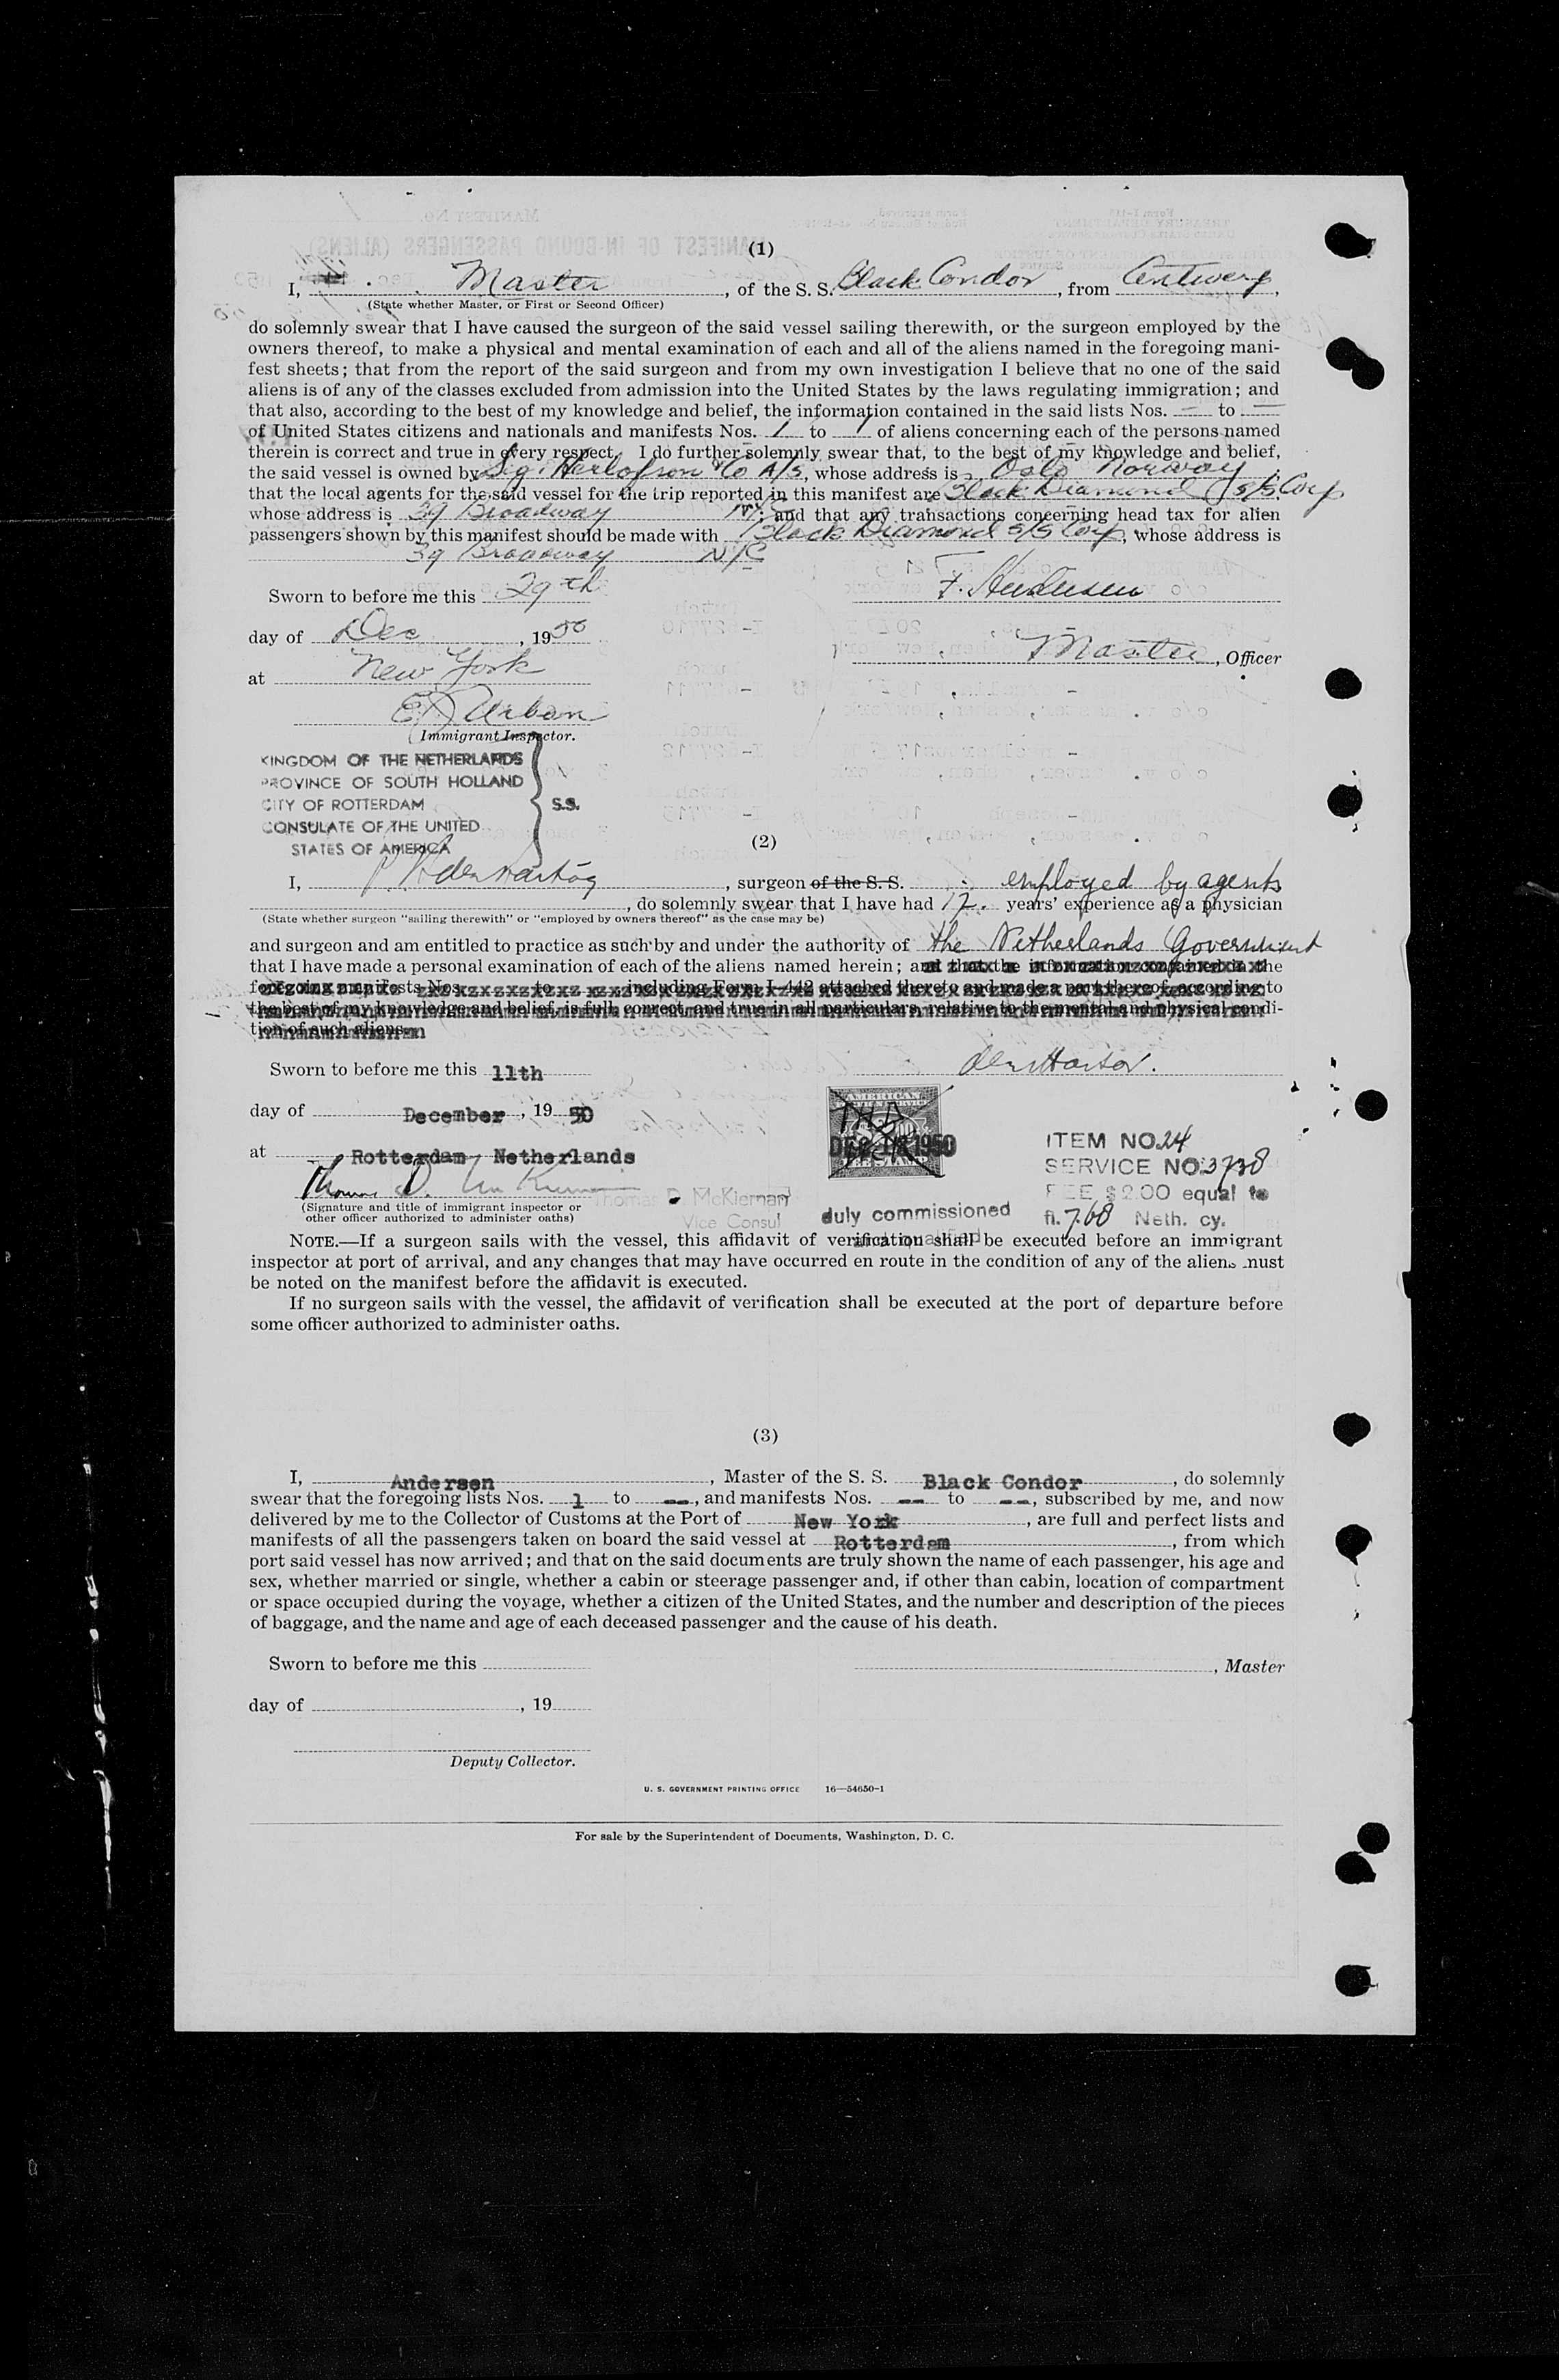 (1)
I, Master, of the S. S. Black Condor, from Antwerp,
(State whether Master, or First or Second Officer)
do solemnly swear that I have caused the surgeon of the said vessel sailing therewith, or the surgeon employed by the
owners thereof, to make a physical and mental examination of each and all of the aliens named in the foregoing mani-
fest sheets; that from the report of the said surgeon and from my own investigation I believe that no one of the said
aliens is of any of the classes excluded from admission into the United States by the laws regulating immigration; and
that also, according to the best of my knowledge and belief, the information contained in the said lists Nos. — to —
of United States citizens and nationals and manifests Nos. 1 to 1 of aliens concerning each of the persons named
therein is correct and true in every respect. I do further solemnly swear that, to the best of my knowledge and belief,
the said vessel is owned by Sig. Herlofson & Co A/S, whose address is Oslo Norway;
that the local agents for the said vessel for the trip reported in this manifest are Black Diamond S/S Corp
whose address is 39 Broadway N.Y.C; and that any transactions concerning head tax for alien
passengers shown by this manifest should be made with Black Diamond S/S Corp, whose address is
39 Broadway NYC
Sworn to before me this 29th
day of Dec, 1950
Master, Officer
at New York
E. D. Urban
Immigrant Inspector.
KINGDOM OF THE NETHERLANDS
PROVINCE OF SOUTH HOLLAND
CITY OF ROTTERDAM S.S.
CONSULATE OF THE UNITED
STATES OF AMERICA
(2)
I, den Hartog, surgeon of the S. S. employed by agents
, do solemnly swear that I have had 12 years' experience as a physician
(State whether surgeon "sailing therewith" or "employed by owners thereof" as the case may be)
and surgeon and am entitled to practice as such by and under the authority of the Netherlands Government
that I have made a personal examination of each of the aliens named herein; and that the information contained in the
foregoing manifests Nos. to including Form I-442 attached thereto and made a part thereof, according to
the best of my knowledge and belief, is full, correct, and true in all particulars, relative to the mental and physical condi-
tion of such aliens.
Sworn to before me this 11th
den Hartog.
day of December, 1950
at Rotterdam Netherlands
AMERICAN
DEC 1950
ITEM NO. 24
SERVICE NO. 3738
FEE $2.00 equal to
fl. 7.68 Neth. cy.
Thomas D. McKiernan
Thomas D. McKiernan
Vice Consul
duly commissioned
and qualified
(Signature and title of immigrant inspector or
other officer authorized to administer oaths)
NOTE.—If a surgeon sails with the vessel, this affidavit of verification shall be executed before an immigrant
inspector at port of arrival, and any changes that may have occurred en route in the condition of any of the aliens must
be noted on the manifest before the affidavit is executed.
If no surgeon sails with the vessel, the affidavit of verification shall be executed at the port of departure before
some officer authorized to administer oaths.
(3)
I, Andersen, Master of the S. S. Black Condor, do solemnly
swear that the foregoing lists Nos. 1 to --, and manifests Nos. -- to --, subscribed by me, and now
delivered by me to the Collector of Customs at the Port of New York, are full and perfect lists and
manifests of all the passengers taken on board the said vessel at Rotterdam, from which
port said vessel has now arrived; and that on the said documents are truly shown the name of each passenger, his age and
sex, whether married or single, whether a cabin or steerage passenger and, if other than cabin, location of compartment
or space occupied during the voyage, whether a citizen of the United States, and the number and description of the pieces
of baggage, and the name and age of each deceased passenger and the cause of his death.
Sworn to before me this
, Master
day of , 19
Deputy Collector.
U. S. GOVERNMENT PRINTING OFFICE 16—54650-1
For sale by the Superintendent of Documents, Washington, D. C.